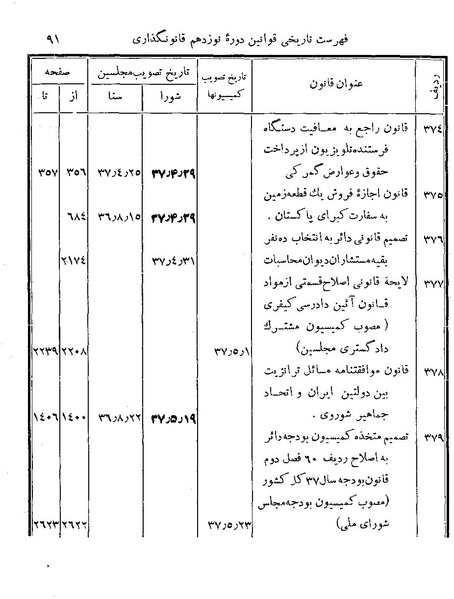 فهرست تاریخی قوانین دورهٔ نوزدهم قانونگذاری ۹۱
ردیف عنوان قانون تاریخ تصویب کمیسیونها تاریخ تصویب مجلسین صفحه
شورا سنا از تا
۳۷٤ قانون راجع به معافیت دستگاه
فرستنده تلویزیون از پرداخت
حقوق و عوارض گمرکی ۳۷٫۴٫۲۹ ۳۷٫٤٫۲۵ ۳۵۶ ۳۵۷
۳۷۵ قانون اجازهٔ فروش یك قطعه زمین
به سفارت کبرای پاکستان . ۳۷٫۴٫۲۹ ۳۶٫۸٫۱۵ ۶۸٤
۳۷۶ تصمیم قانونی دائر به انتخاب ده نفر
بقیه مستشاران دیوان محاسبات ۳۷٫٤٫۳۱ ۲۱۷٤
۳۷۷ لایحهٔ قانونی اصلاح قسمتی از مواد
قانون آئین دادرسی کیفری
(مصوب کمیسیون مشترك
دادگستری مجلسین) ۳۷٫۵٫۱ ۲۲۰۸ ۲۲۳۹
۳۷۸ قانون موافقتنامه مسائل ترانزیت
بین دولتین ایران و اتحاد
جماهیر شوروی . ۳۷٫۵٫۱۹ ۳۶٫۸٫۲۲ ۱٤۰۰ ۱٤۰۶
۳۷۹ تصمیم متخذه کمیسیون بودجه دائر
به اصلاح ردیف ۶۰ فصل دوم
قانون بودجه سال ۳۷ کل کشور
(مصوب کمیسیون بودجه مجلس
شورای ملی) ۳۷٫۵٫۲۳ ۲۶۲۲ ۲۶۲۳